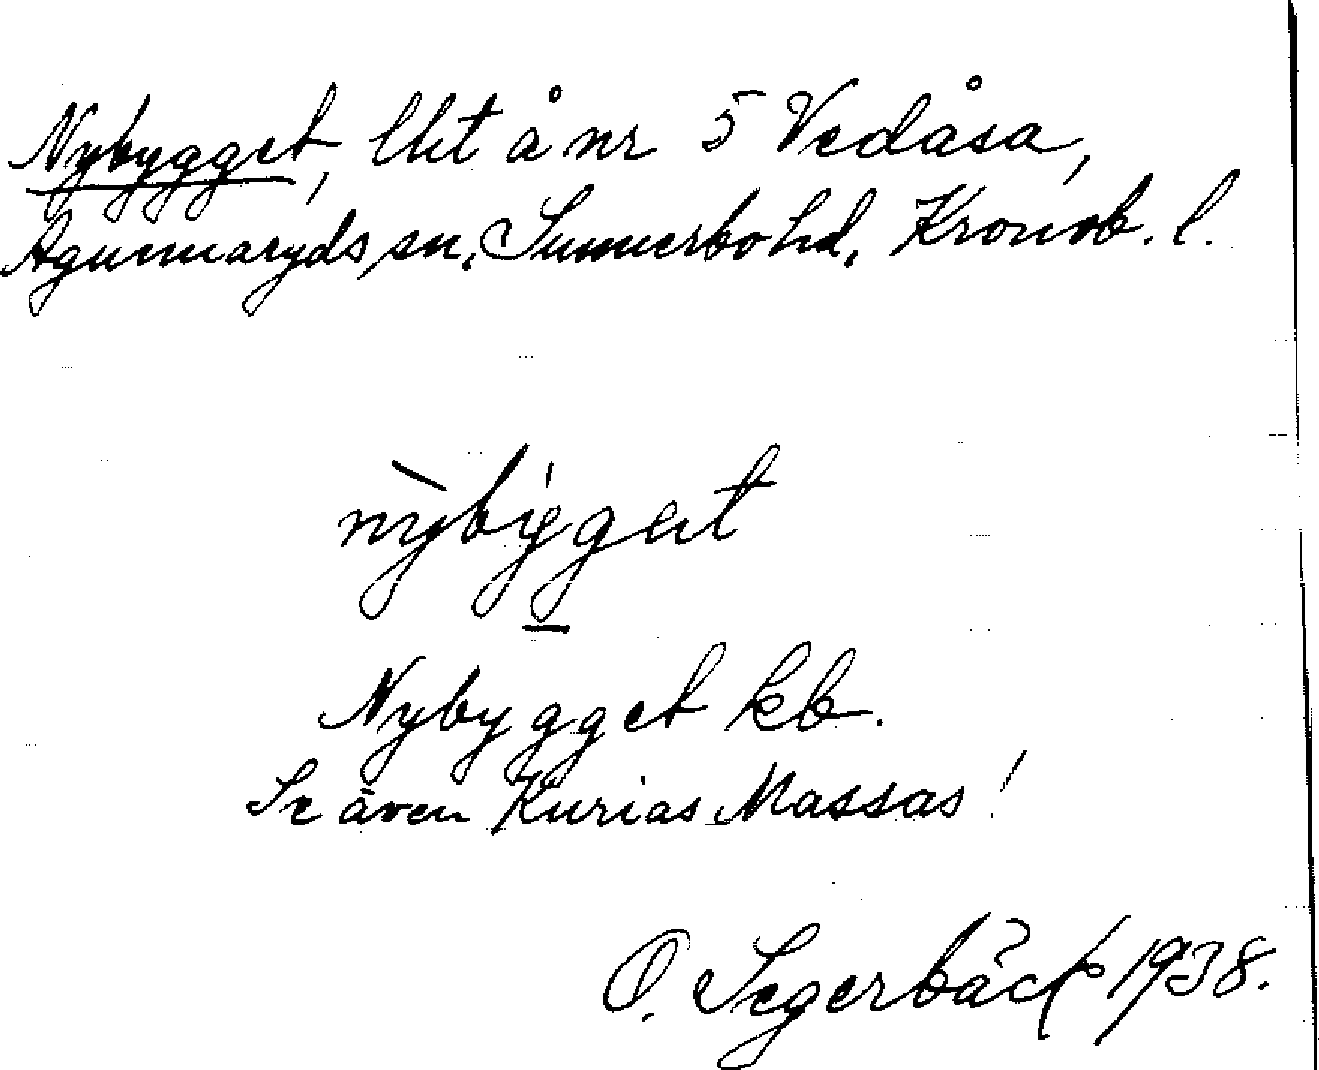 Nybygget, lht å nr 5 Vedåsa,
Agunnaryds sn, Sunnerbo hd, Kronob. l.
nỳbýgət
Nybygget kb.
Se även Kurias Massas!
O. Segerbäck 1938.